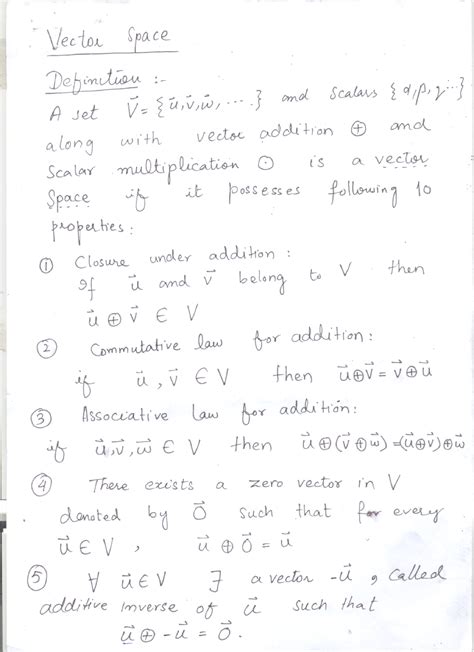 Vector Space
Definition :-
A set V⃗ = {u⃗,v⃗,w⃗, ....} and scalars {α,β,γ...}
along with vector addition ⊕ and
scalar multiplication ⊙ is a vector
space if it possesses following 10
properties:
① Closure under addition :
If u⃗ and v⃗ belong to V then
u⃗ ⊕ v⃗ ∈ V
② Commutative law for addition:
if u⃗, v⃗ ∈ V then u⃗⊕v⃗ = v⃗⊕u⃗
③ Associative Law for addition:
if u⃗,v⃗,w⃗ ∈ V then u⃗⊕(v⃗⊕w⃗)=(u⃗⊕v⃗)⊕w⃗
④ There exists a zero vector in V
denoted by 0⃗ such that for every
u⃗ ∈ V, u⃗ ⊕ 0⃗ = u⃗
⑤ ∀ u⃗∈V ∃ a vector -u⃗, called
additive inverse of u⃗ such that
u⃗⊕-u⃗ = 0⃗.